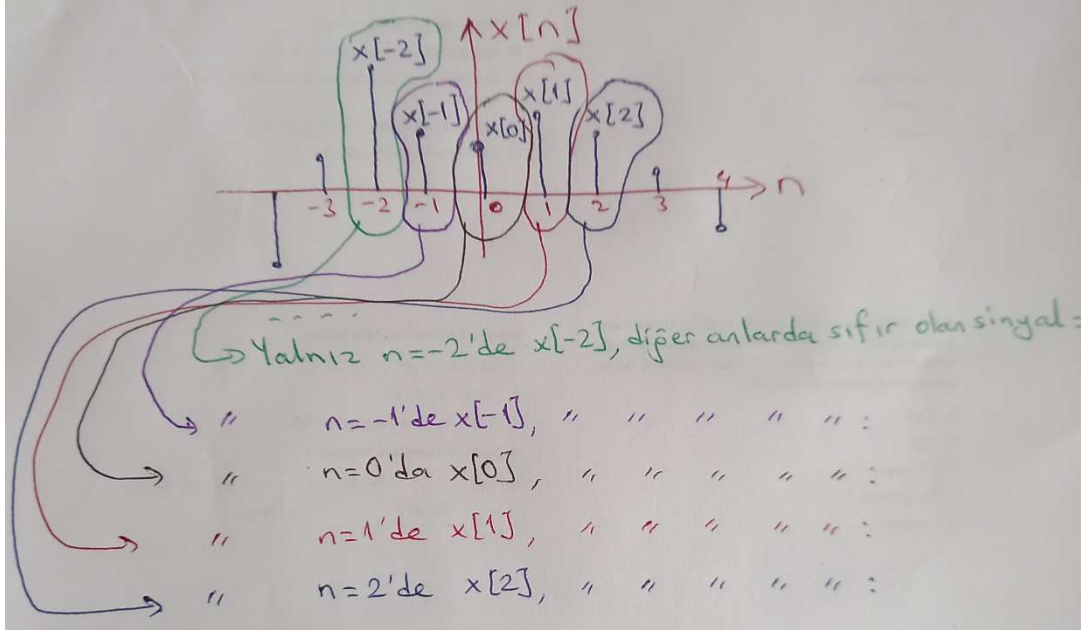 x[n]
x[-2]
x[-1] x[0] x[1] x[2]
-3 -2 -1 0 1 2 3 4 n
Yalnız n=-2'de x[-2], diğer anlarda sıfır olan sinyal :
" n=-1'de x[-1], " " " " " :
" n=0'da x[0], " " " " " :
" n=1'de x[1], " " " " " :
" n=2'de x[2], " " " " " :